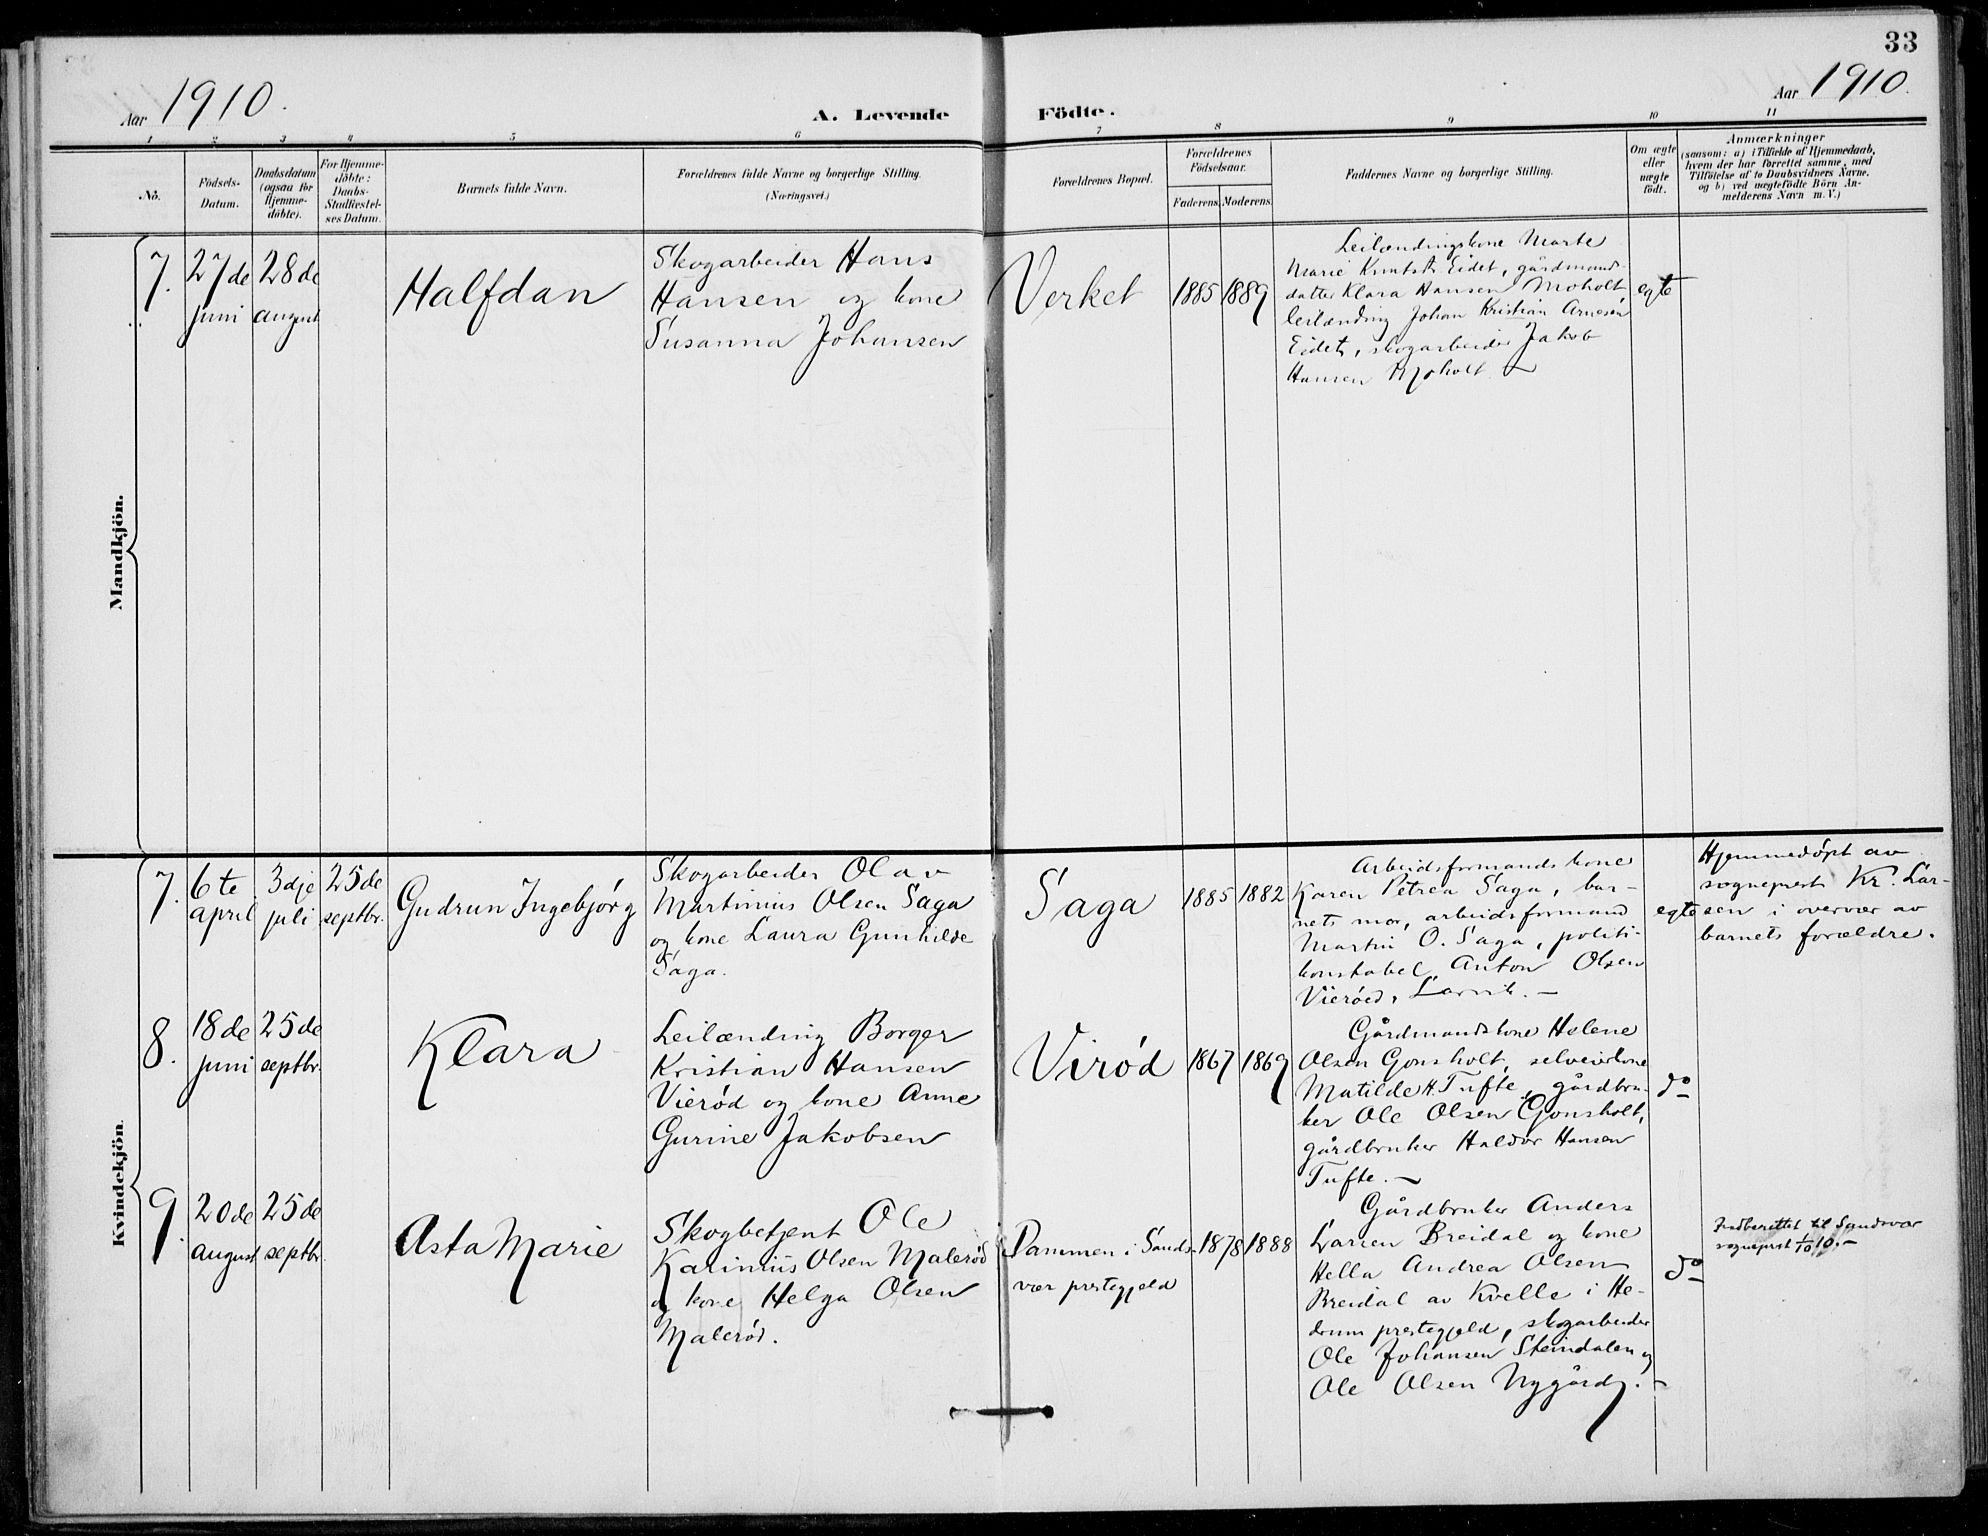 33
Aar 1910.
A. Levende Födte.
Aar 1910.
1 2 3 4 5 6 7 8 9 10 11
No.
Födsels-
Datum.
Daabsdatum
(ogsaa for
Hjemme-
döbte).
For Hjemme-
döbte:
Daabs-
Stadfæstel-
ses Datum.
Barnets fulde Navn.
Forældrenes fulde Navne og borgerlige Stilling.
(Næringsvei.)
Forældrenes Bopæl.
Forældrenes
Födselsaar.
Faderens. Moderens.
Faddernes Navne og borgerlige Stilling.
Om ægte
eller
uægte
födt.
Anmærkninger
(saasom: a) i Tilfælde af Hjemmedaab,
hvem der har forrettet samme, med
Tilföielse af to Daabsvidners Navne.
og b) ved uægtefödte Börn An-
melderens Navn m. V.)
Mandkjön.
7.
27de
juni
28de
august
Halfdan
Skogarbeider Hans
Hansen og kone
Susanna Johansen
Verket
1885
1889
Leilændingskone Marte
Marie Knutsdtr Eidet, gårdmands-
datter Klara Hansen Moholt
leilænding Johan Kristian Arnesen
Eidet, skogarbeider Jakob
Hansen Moholt. —
egte
Kvindekjön.
7.
6te
april
3dje
juli
25de
septbr.
Gudrun Ingebjørg
Skogarbeider Olav
Martinius Olsen Saga
og kone Laura Gunhilde
Saga.
Saga
1885
1882
Arbeidsformands kone
Karen Petrea Saga, bar-
nets mor, arbeidsformand
Martin O. Saga, politi-
konstabel Anton Olsen
Vierøed, Larvik. —
egte
Hjemmedøpt av
sogneprest Kr. Lar-
sen i overvær av
barnets forældre.
8.
18de
juni
25de
septbr.
Klara
Leilænding Borger
Kristian Hansen
Vierød og kone Anne
Gurine Jakobsen
Virød
1867
1869
Gårdmandskone Helene
Olsen Gonsholt, selveierkone
Matilde H. Tufte, gårdbru-
ker Ole Olsen Gonsholt,
gårdbruker Haldor Hansen
Tufte. —
do
9.
20de
august
25de
septbr.
Asta Marie
Skogbetjent Ole
Karinius Olsen Malerød
og kone Helga Olsen
Malerød.
Dammen i Sands-
vær prestegjeld
1878
1888
Gårdbruker Anders
Larsen Breidal og kone
Hella Andrea Olsen
Breidal av Kvelle i He-
drum prestegjeld, skogarbeider
Ole Johansen Steindalen og
Ole Olsen Nygård. —
do
Indberettet til Sandsvær
sogneprest 1/10 10. —